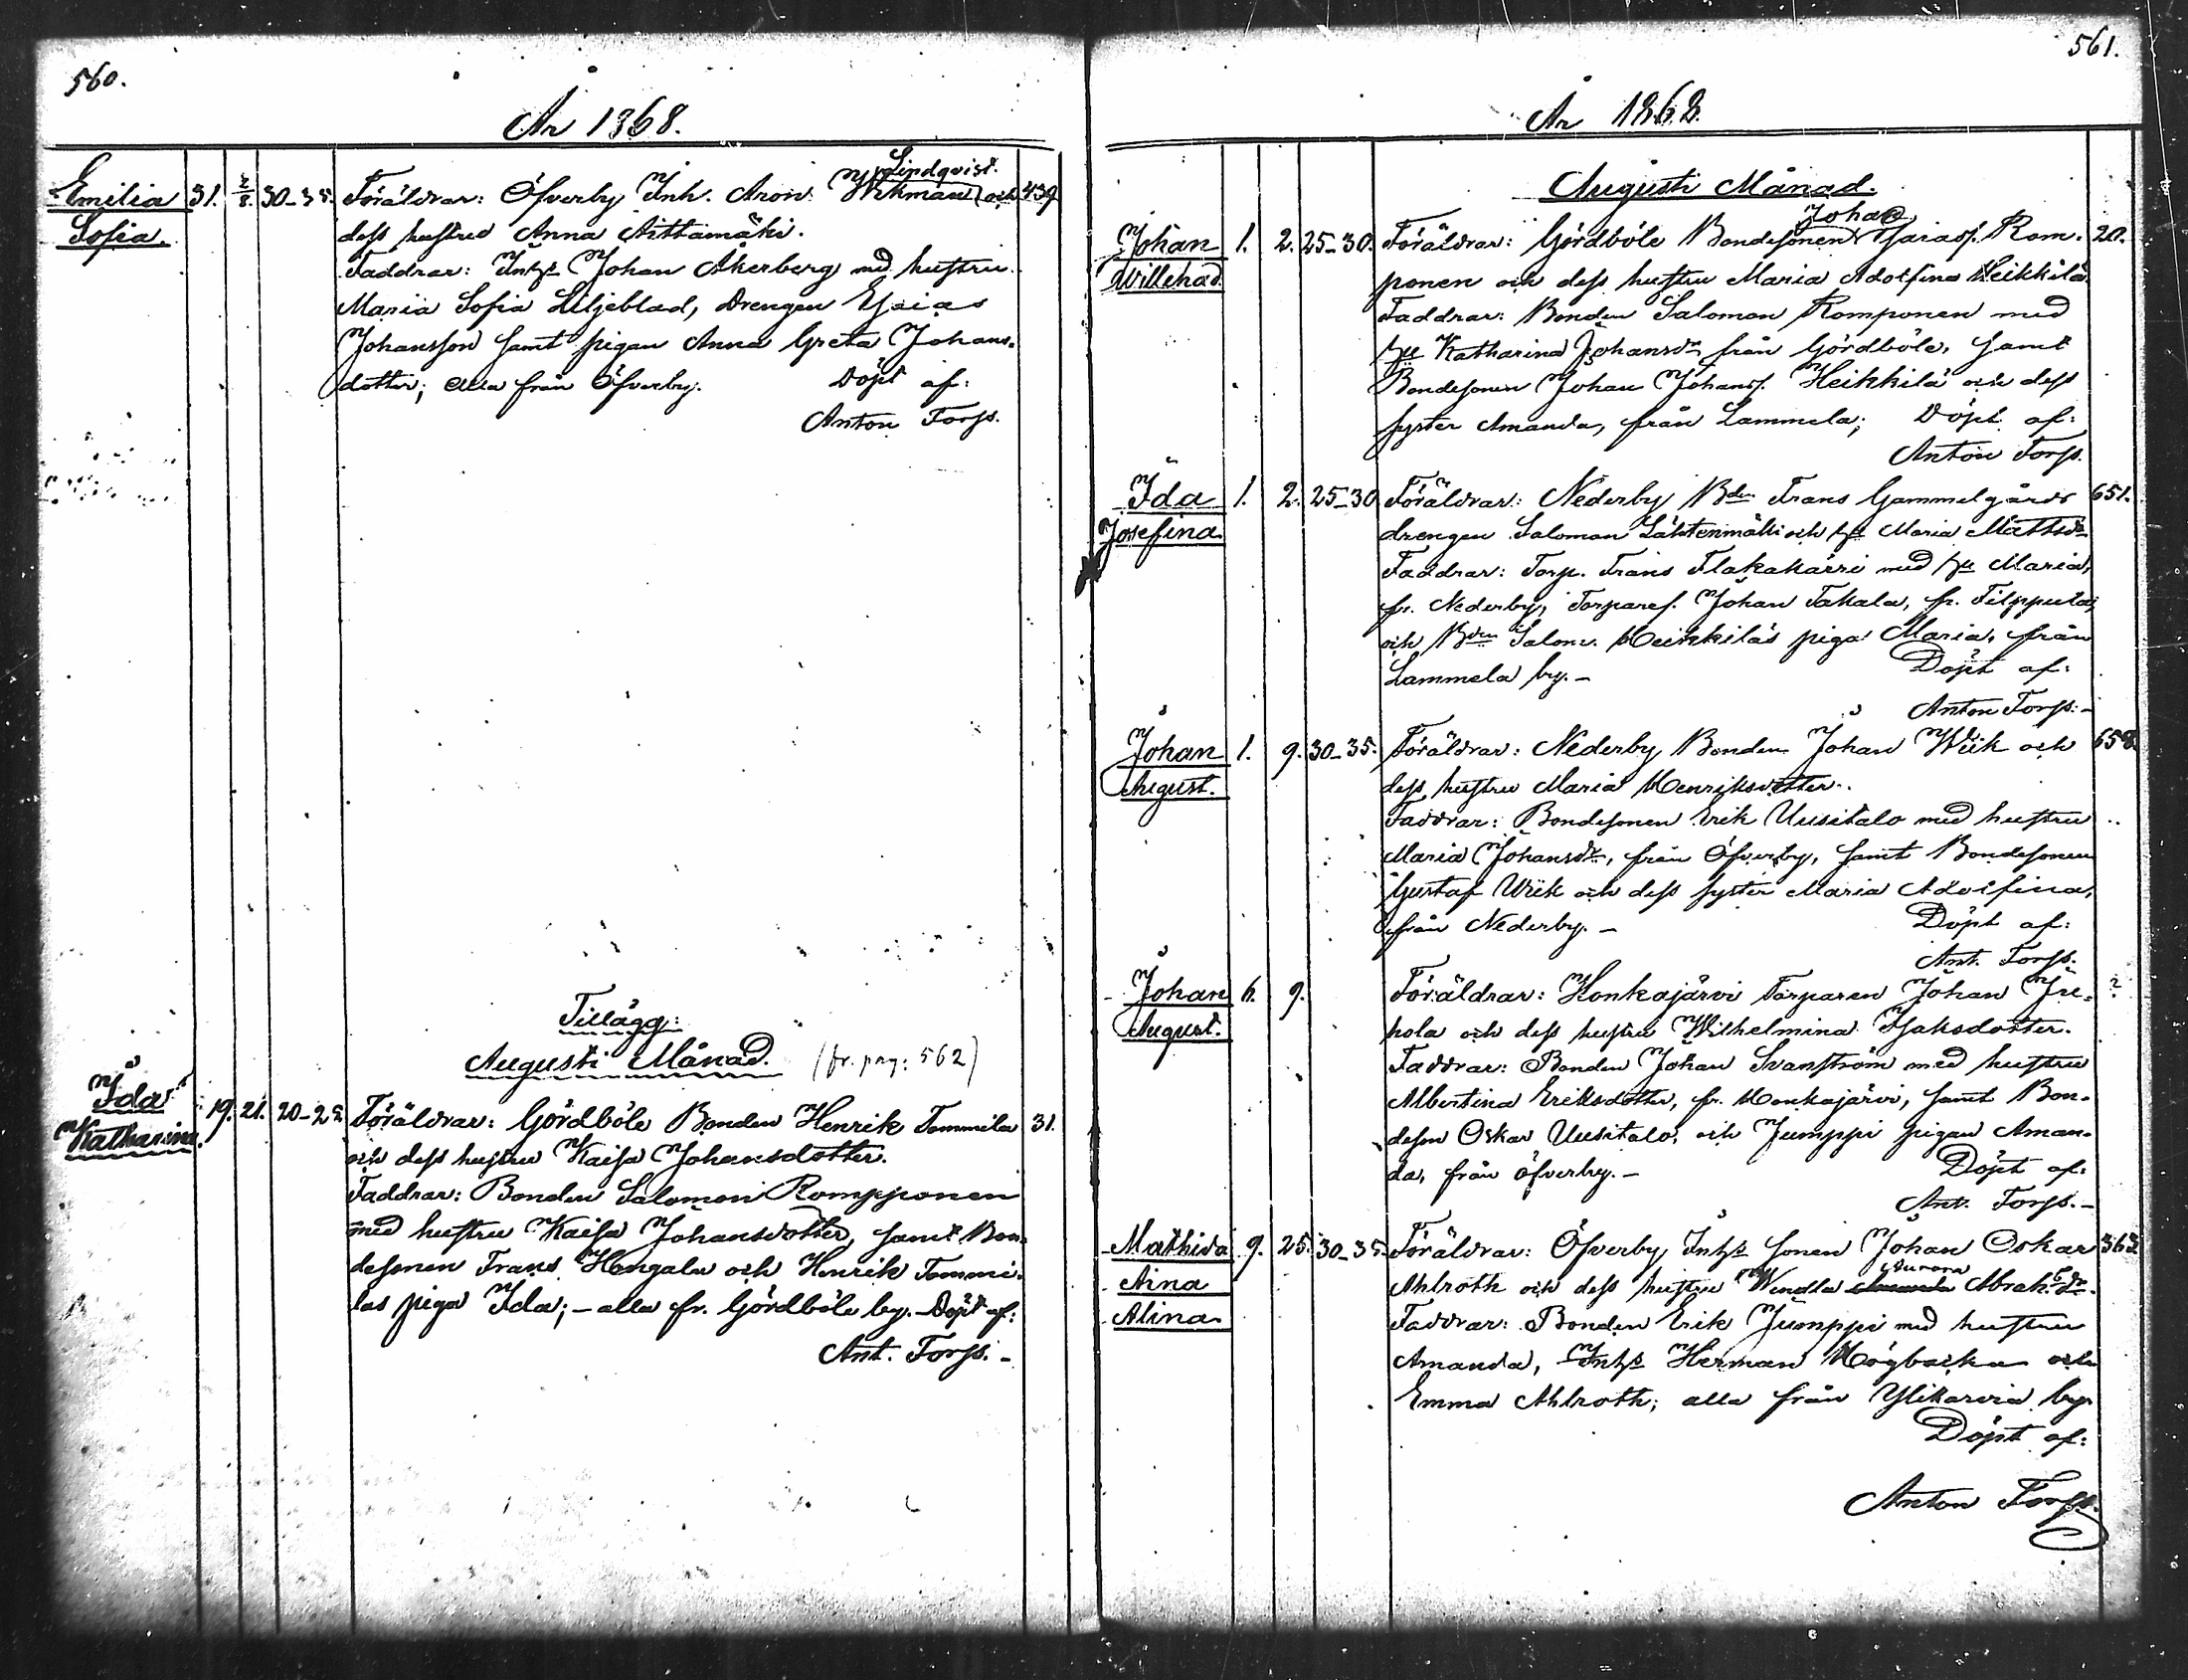 560.
År 1868.
Emilia 31. 2/8. 30-35. Föräldrar: Öfverby Inh. Aron Wikman (och 439
Lindqvist.
Sofia. dess hustru Anna Aittamäki.
Faddrar: Inhs Johan Åkerberg med hustru
Maria Sofia Liljeblad, Drengen Esaias
Johansson samt pigan Anna Greta Johans-
dotter; alla från Öfverby. Döpt af:
Anton Forss.
Tillägg:
Augusti Månad. (fr. pag: 562)
Ida 19. 21. 20-25. Föräldrar: Gördböle Bonden Henrik Tommila 31.
Katharina. och dess hustru Kaisa Johansdotter.
Faddrar: Bonden Salomon Rompponen
med hustru Kaisa Johansdotter, samt Bon-
desonen Frans Hongala och Henrik Tommi-
las piga Ida; - alla fr. Gördböle by. - Döpt af:
Ant. Forss. -
561.
År 1868.
Augusti Månad.
Johan
Johan 1. 2. 25-30. Föräldrar: Gördböle Bondesonen Isaiass. Rom- 20.
Willehad. ponen och dess hustru Maria Adolfina Heikkilä
Faddrar: Bonden Salomon Romponen med
hu Katharina Johansdr från Gördböle, samt
Bondesonen Johan Johanss. Heikkilä och dess
syster Amanda, från Lammela; Döpt af:
Anton Forss.
Ida 1. 2. 25-30 Föräldrar: Nederby Bden Frans Gammelgårds 651.
Josefina. drengen Salomon Lähtenmäki och hu Maria Mattsdr
Faddrar: Torp. Frans Flakakärri med hu Maria,
fr. Nederby, Torpares. Johan Takala, fr. Filppula,
och Bden Salom. Heikkiläs piga Maria, från
Lammela by. - Döpt af:
Anton Forss. -
Johan 1. 9. 30-35. Föräldrar: Nederby Bonden Johan Wiik och 658.
August. dess hustru Maria Henriksdotter.
Faddrar: Bondesonen Erik Uusitalo med hustru
Maria Johansdr, från Öfverby, samt Bondesonen
Gustaf Wiik och dess syster Maria Adolfina,
från Nederby. - Döpt af:
Ant. Forss.
Johan 6. 9. Föräldrar: Honkajärvi Torparen Johan Ju- ?
August. hola och dess hustru Wilhelmina Isaksdotter.
Faddrar: Bonden Johan Svanström med hustru
Albertina Eriksdotter, fr. Honkajärvi, samt Bon-
deson Oskar Uusitalo, och Jumppi pigan Aman-
da, från Öfverby. - Döpt af:
Ant. Forss. -
Mathilda 9. 25. 30-35. Föräldrar: Öfverby Inhs sonen Johan Oskar 363
Aurora
Aina Ahlroth och dess hustru Wendla Amanda Abrah.dr.
Alina. Faddrar: Bonden Erik Jumppi med hustru
Amanda, Inhs Herman Högbacka och
Emma Ahlroth; alla från Ylikarvia by
Döpt af:
Anton Forss.